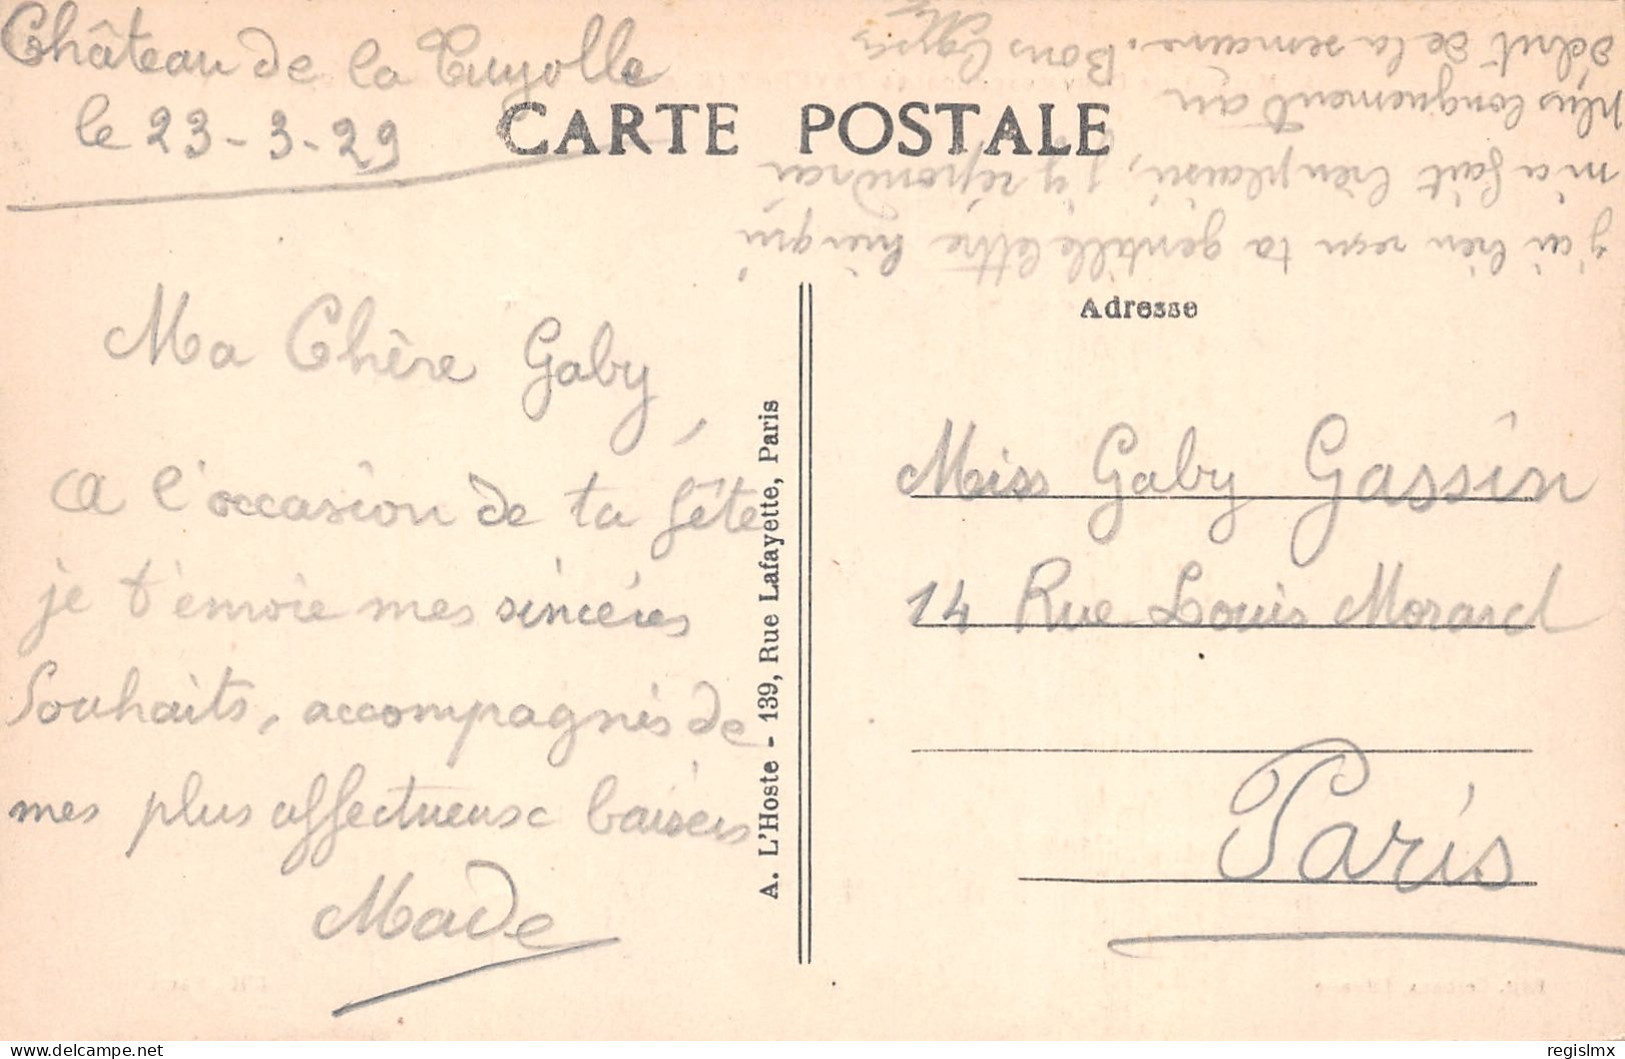 Château de la Tuyolle
le 23-3-29
CARTE POSTALE
j'ai bien reçu ta gentille lettre hier qui
m'a fait bien plaisir, j'y répondrai
plus longuement au
début de la semaine. Bons baisers
Adresse
Ma Chère Gaby,
A l'occasion de ta fête
je t'envoie mes sincères
souhaits, accompagnés de
mes plus affectueuse baisers
Made
A. L'Hoste - 139, Rue Lafayette, Paris
Miss Gaby Gassin
14 Rue Louis Morard
Paris
delcampe.net
regislmx